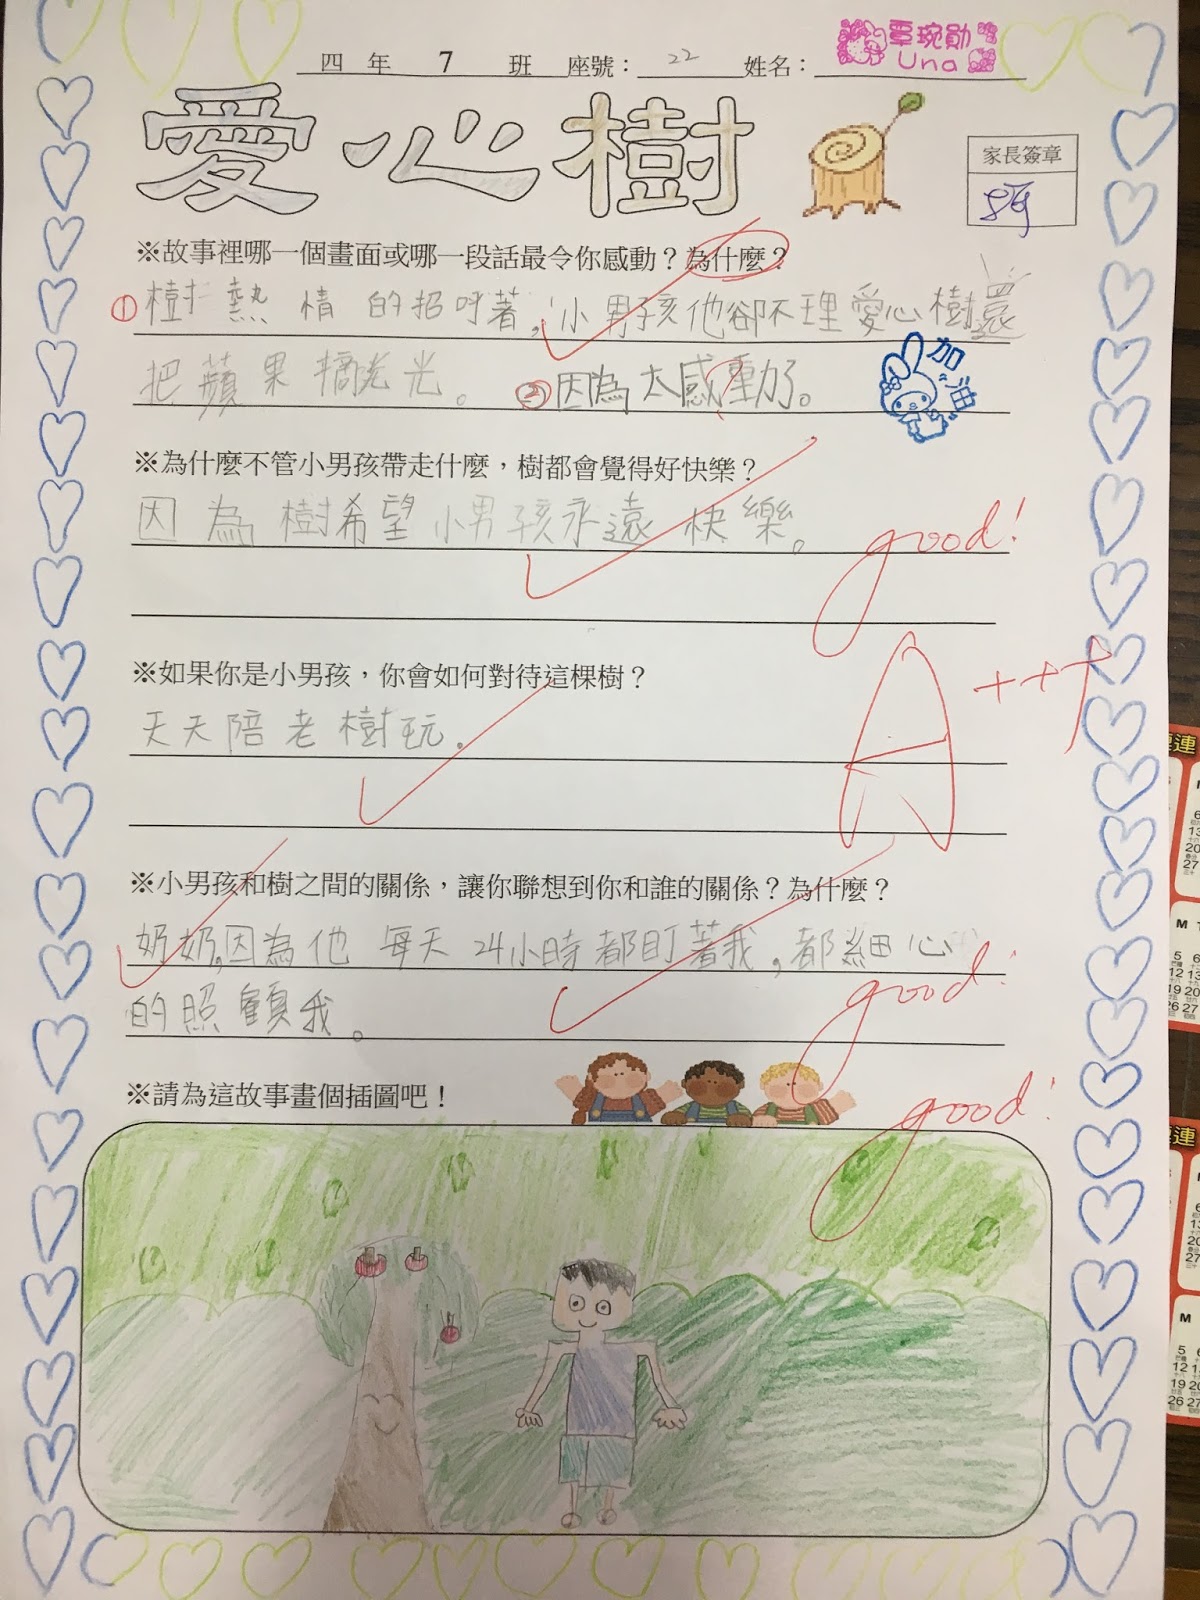 四 年 7 班 座號： 22 姓名： 覃琬勛
Una
愛心樹
家長簽章
※故事裡哪一個畫面或哪一段話最令你感動？為什麼？
①樹熱情的招呼著，小男孩他卻不理愛心樹還
把蘋果摘光光。②因為太感動了。
加油
※為什麼不管小男孩帶走什麼，樹都會覺得好快樂？
因為樹希望小男孩永遠快樂。
good!
※如果你是小男孩，你會如何對待這棵樹？
天天陪老樹玩。
A+++
※小男孩和樹之間的關係，讓你聯想到你和誰的關係？為什麼？
奶奶，因為他每天24小時都盯著我，都細心
的照顧我。
good!
※請為這故事畫個插圖吧！
good!